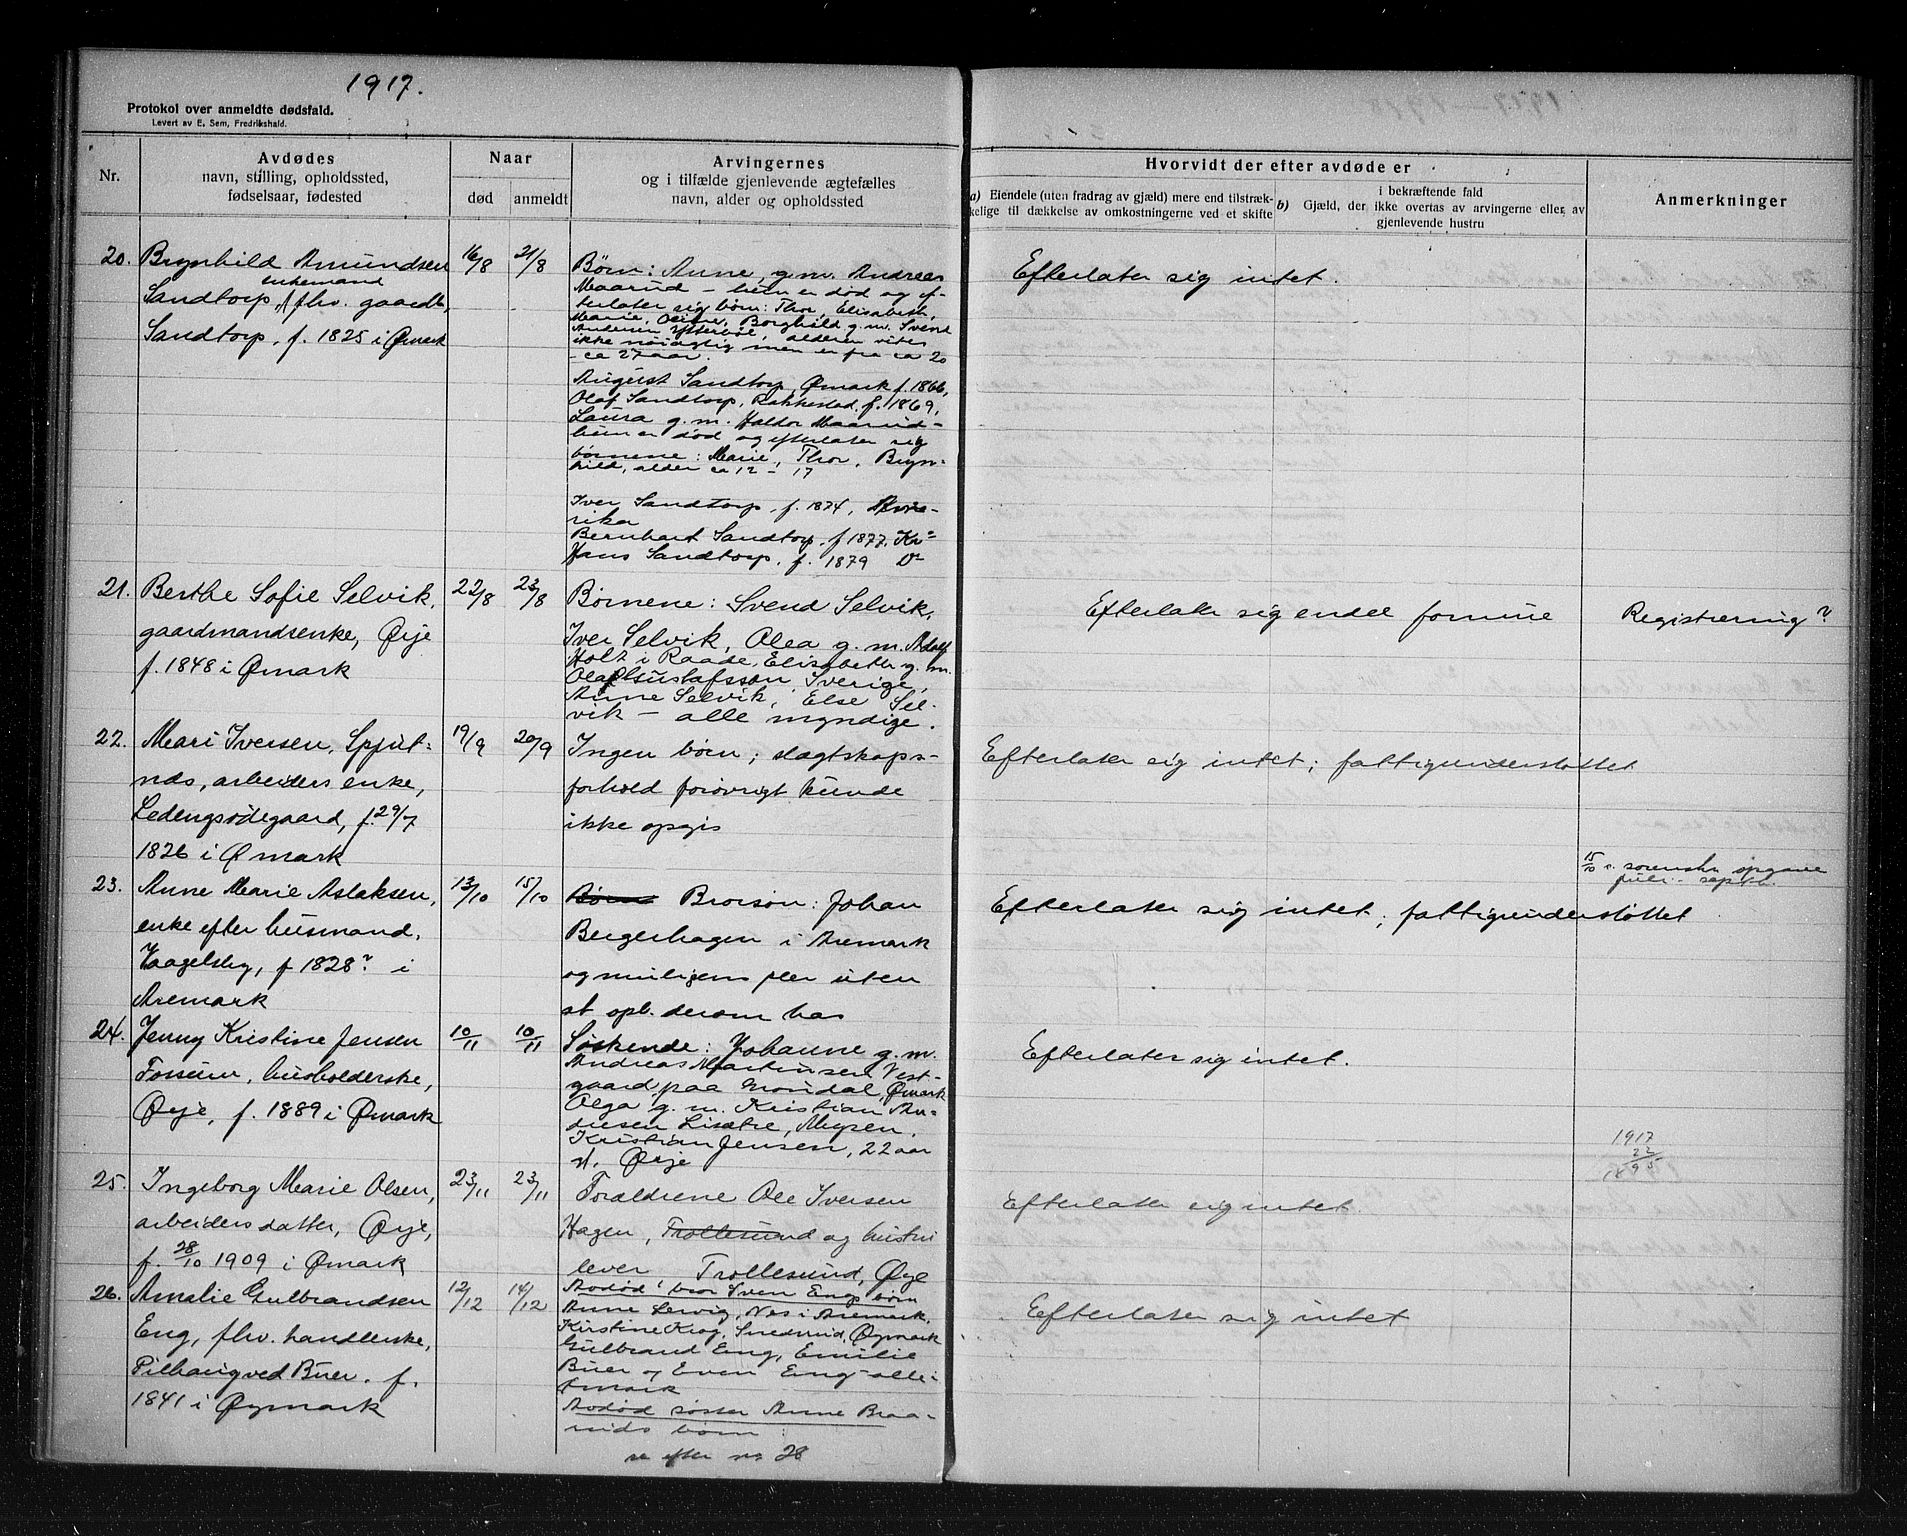 1917.
Protokol over anmeldte dødsfald.
Levert av E. Sem, Fredrikshald.
Nr.
Avdødes
navn, stilling, opholdssted,
fødselsaar, fødested
Naar
død
anmeldt
Arvingernes
og i tilfælde gjenlevende ægtefælles
navn, alder og opholdssted
Hvorvidt der efter avdøde er
a) Eiendele (uten fradrag av gjæld) mere end tilstræk-
kelige til dækkelse av omkostningerne ved et skifte
b) Gjæld, der
i bekræftende fald
ikke overtas av arvingerne eller av
gjenlevende hustru
Anmerkninger
20.
Brynhild Amundsen
enkemand
Sandtorp, fhv. gaardb,
Sandtorp, f. 1825 i Ømark
16/8
21/8
Børn: Anne, g.m. Andreas
Maarud – hun er død og ef-
terlater sig børn: Thor, Elisabeth,
Marie, Borghild g.m. Svend
Andersen alderen vites
ikke nøiagtig men er fra ca 20
– ca 27 aar.
August Sandtorp, Ømark f. 1866,
Olaf Sandtorp, Rakkestad, f. 1869,
Laura g.m. Haldor Maarud –
hun er død og efterlater sig
børnene: Marie, Thor, Bryn-
hild, alder ca 12 – 17
Iver Sandtorp, f. 1874, Ame-
rika
Bernhart Sandtorp, f 1877, Kr.
Hans Sandtorp, f. 1879 Do
Efterlater sig intet.
21.
Berthe Sofie Selvik,
gaardmandsenke, Ørje
f. 1848 i Ømark
22/8
23/8
Børnene: Svend Selvik,
Iver Selvik, Olea g.m. Adolf
Holt i Raade, Elisabeth g.m.
Olaf Gustafsson Sverige,
Anne Selvik, Else Sel-
vik – alle myndige.
Efterlater sig endel formue
Registrering?
22.
Mari Iversen, Spjut-
næs, arbeiders enke,
Ledengsødegaard, f. 29/7
1826 i Ømark
19/9
20/9
Ingen børn; slægtskaps-
forhold forøvrigt kunde
ikke opgis
Efterlater sig intet; fattigunderstøttet
15/10 s. sorenskr opgave
juli – septb.
23.
Anne Marie Aslaksen,
enke efter husmand,
Kaagelsby, f 1828? i
Aremark
13/10
15/10
Børn Brorsøn: Johan
Bergerhagen i Aremark
og muligens fler uten
at opl. derom has
Efterlater sig intet; fattigunderstøttet
24.
Jenny Kristine Jensen
Fossum, husholderske,
Ørje, f. 1889 i Ømark
10/11
10/11
Søskende: Johanne g.m.
Andreas Martinsen Vest-
gaard paa Ømark
Olga g.m. Kristian An-
dresen Lisætre, Mysen,
Kristian Jensen, 22 aar
Ørje
Efterlater sig intet.
1917
22
1895
25.
Ingeborg Marie Olsen,
arbeiders datter, Ørje,
f. 28/10 1909 i Ømark
23/11
23/11
Forældrene Ole Iversen
Hagen, Trollesund og hustru
lever Trollesund, Ørje
Efterlater sig intet.
26.
Amalie Gulbrandsen
Eng, fhv. handlerske,
Pilhaug ved Buer. f.
1841 i Øymark
12/12
14/12
Avdød bror Sven Engs børn
Anne Lervig, Nes i Aremark,
Kirstine Krog, Øymark
Gulbrand Eng, Emilie
Buer og Even Eng alle i
Ømark
Avdød søster Anne Braa-
nids børn:
se efter nr 28
Efterlater sig intet